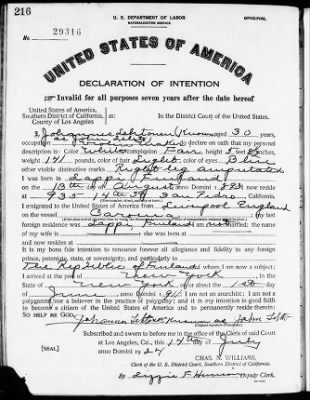 216
U. S. DEPARTMENT OF LABOR
NATURALIZATION SERVICE
ORIGINAL
No. 29316
UNITED STATES OF AMERICA
DECLARATION OF INTENTION
Invalid for all purposes seven years after the date hereof
United States of America,
Southern District of California,
County of Los Angeles
In the District Court of the United States.
I, aged 30 years,
occupation , do declare on oath that my personal
description is: Color White, complexion Fair, height 5 feet inches,
weight 141 pounds, color of hair Light, color of eyes Blue
other visible distinctive marks Right leg amputated
I was born in Lappi, Finland
on the 13th day of August, anno Domini 1893; I now reside
at 935 4th St San Pedro
I emigrated to the United States of America from Liverpool England
on the vessel Caronia; my last
foreign residence was Lappi, Finland; I am not married; the name
of my wife is was born at
and now resides at
It is my bona fide intention to renounce forever all allegiance and fidelity to any foreign
prince, potentate, state, or sovereignty, and particularly to
The Republic of Finland, of whom I am now a subject;
I arrived at the port of New York, in the
State of New York, on or about the 1st day
of June, anno Domini 1911; I am not an anarchist; I am not a
polygamist nor a believer in the practice of polygamy; and it is my intention in good faith
to become a citizen of the United States of America and to permanently reside therein:
SO HELP ME GOD.
Subscribed and sworn to before me in the office of the Clerk of said Court
at Los Angeles, Cal., this 14th day of July
anno Domini 1924
[SEAL]
CHAS. N. WILLIAMS,
Clerk of the U. S. District Court, Southern District of California.
By Lizzie Deputy Clerk.